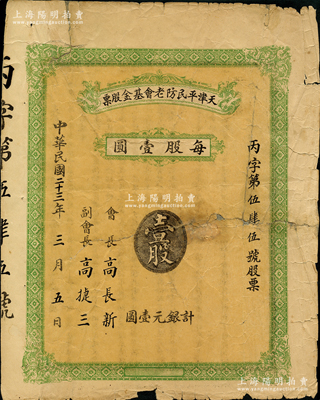 上海陽明拍賣
www.ymauction.cn
天津平民防老會基金股票
每股壹圓
丙字第伍肆伍號股票
壹股
計銀元壹圓
會長高長新
副會長高捷三
中華民國二十三年三月五日
丙字第伍肆伍號
上海陽明拍賣